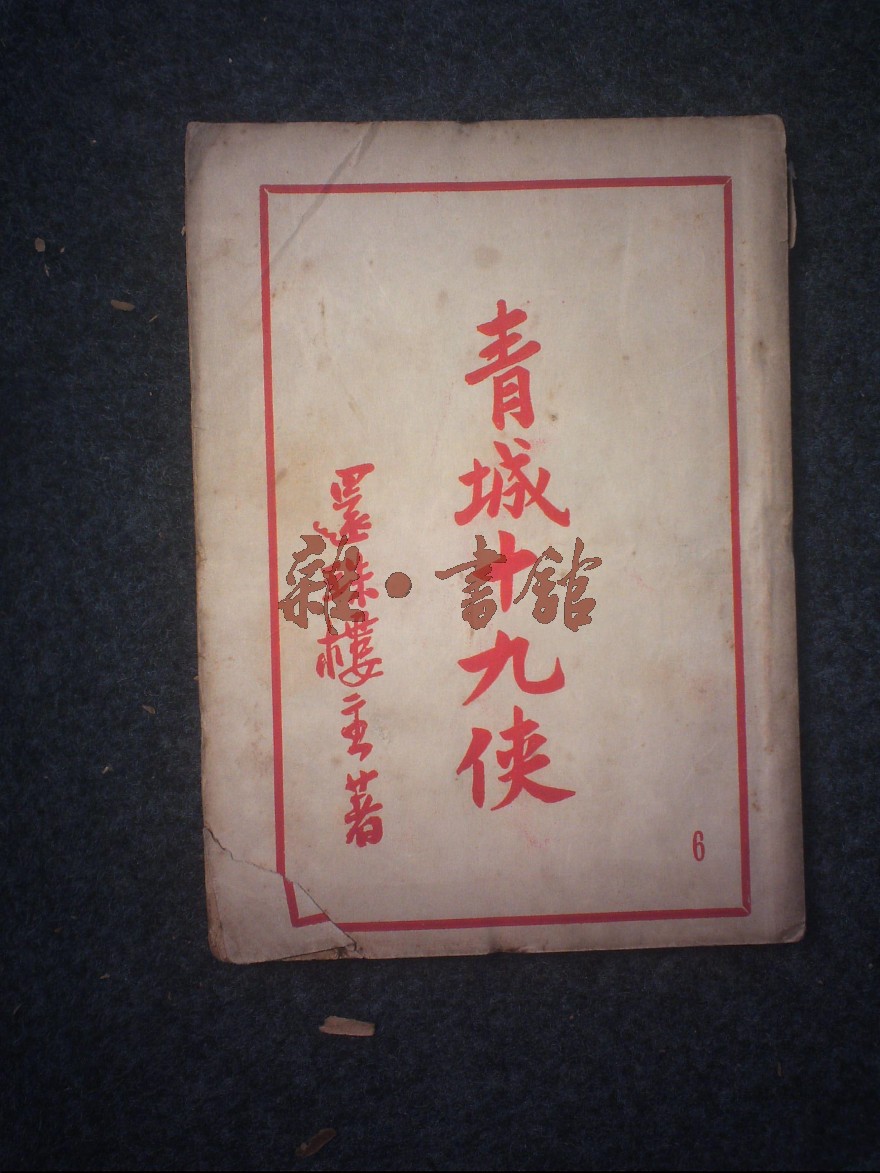 青城十九俠
還珠樓主著
6
雜·書館